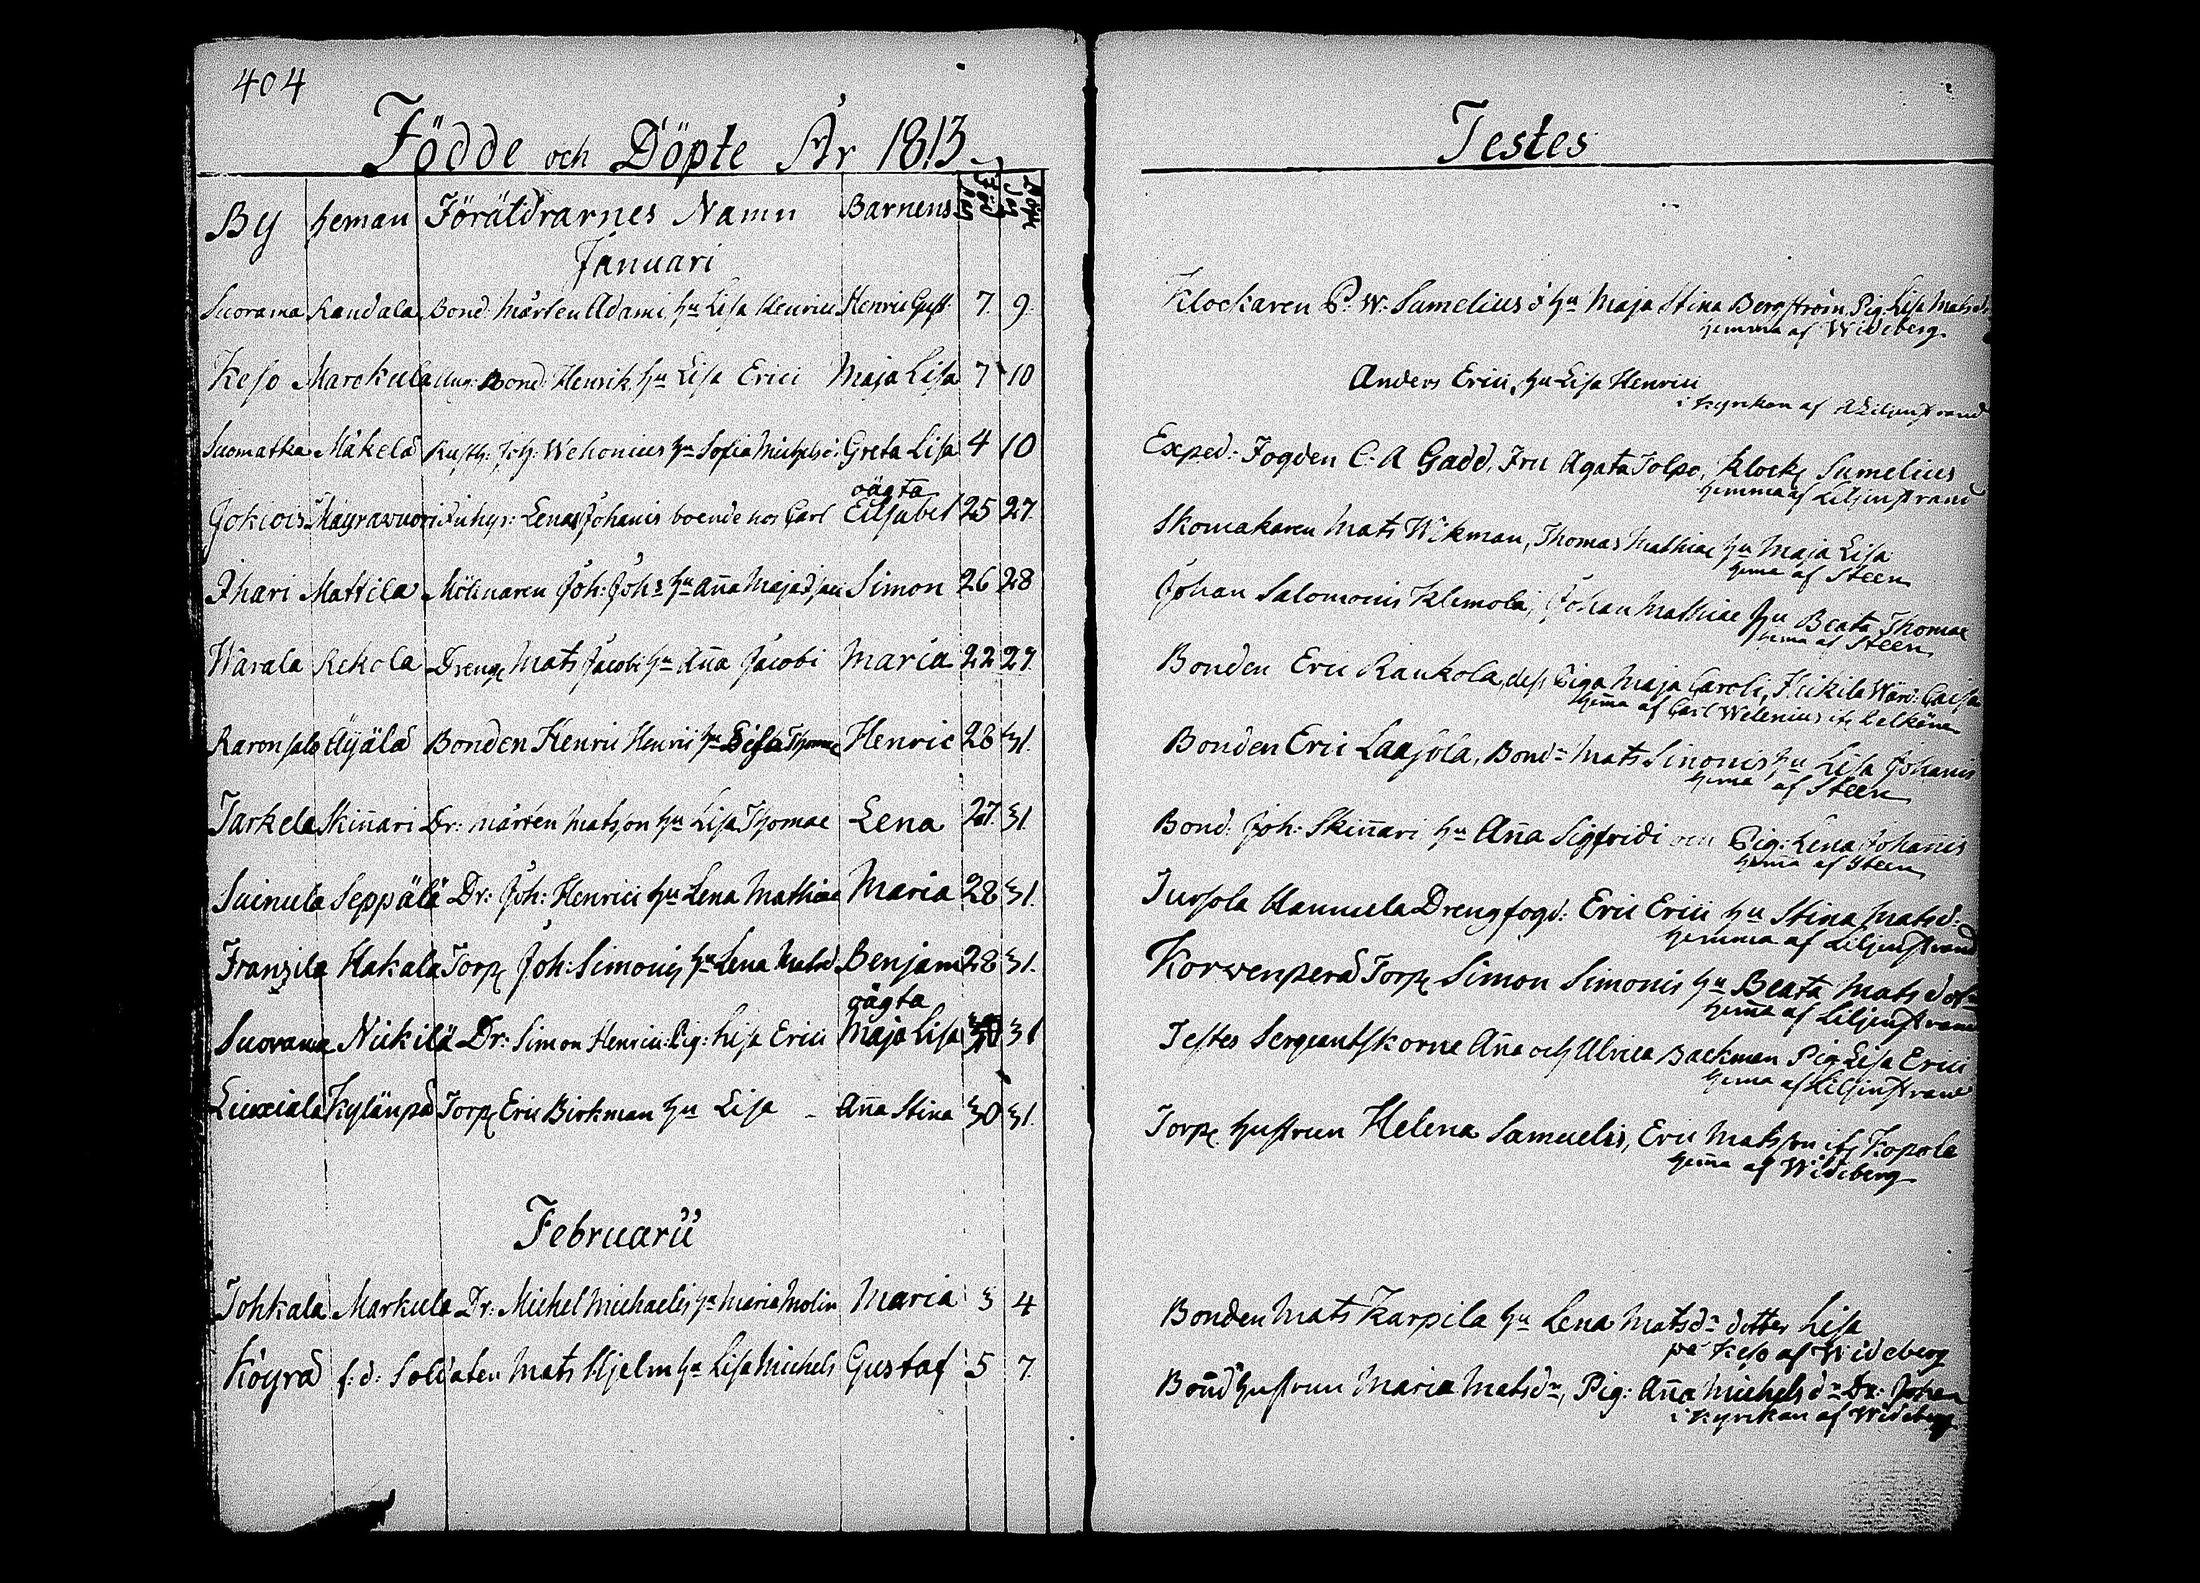 404
Födde och Döpte År 1813
By heman Förätdrarnes Namn Barnens
Januari
Suorama Randala Bond: Mårten Adami hu Lisa Henrici Henric Gust 7. 9.
Keso Marckula Ung: Bond: Henrik hu Lisa Erici Maja Lisa 7 10
Suomatka Mäkelä Rusth: Joh: Wehonius hu Sofia Michelsd: Greta Lisa 4 10
oägta
Jokiois Mäyrävuori Inhys: Lena Johanis boende hos Carl Elisabet 25 27.
Ihari Mattila Mölnaren Joh: Johs hu Aña Maja Simon 26 28
Wärala Rekola Dreng Mats Jacobi hu Aña Jacobi Maria 22 29.
Raronsalo Äyälä Bonden Henric Henrici hu Lisa Thomae Henric 28 31.
Tarkela Skiñari Dr: mårten Matsson hu Lisa Thomae Lena 27. 31.
Suinula Seppälä Dr: Joh: Henrici hu Lena Mathiae Maria 28 31.
Franzila Hakala Torp Joh: Simonis hu Lena Matsd Benjam 28 31.
oägta
Suorama Nickilä Dr: Simon Henrici: Pig: Lisa Erici Maja Lisa 30 31
Liuxiala Kylänpä Torp Eric Birkman hu Lisa - Aña Stina 30 31.
Februarii
Tohkala Markula Dr: Michel Michaelis hu Maria Molin Maria 3 4
Köyrä f: d: Soldaten Mats Hjelm hu Lisa Michels Gustaf 5 7.
Testes
Klockaren P. W: Sumelius o hu Maja Stina Bergström, Pig: Lisa Matsdr
hemma af Wideberg.
Anders Erici, hu Lisa Henrici
i kyrckan af A Liljenstrand
Exped: Fogden C. A Gadd, Fru Agata Tolpo, Klock Sumelius
hemma af Liljenstrand
Skomakaren Mats Wikman, Thomas Mathiae hu Maja Lisa
hema af Steen
Johan Salomonis Klemola, Johan Mathiae hu Beata Thomae
hema af Steen
Bonden Eric Raukola, dess Piga Maja Caroli, Nikila Wärd: Caisa
hem̃a af Carl Welenius ifr Kelkäne
Bonden Eric Laajola, Bond: Mats Simonis hu Lisa Johanis
hema af Steen
Bond: Joh: Skiñari hu Aña Sigfridi och Pig: Lena Johañis
hem̃a af Steen
Tursola Uannula Drengfogd: Eric Erici hu Stina Matsd:
hemma af Liljenstrand
Korvenperä Torp Simon Simonis hu Beata Mats dotr
hem̃a af Liljenstrand
Testes Sergeantskorne Aña och Ulrica Backman Pig Lisa Erici
hema af Liljenstrand
Torp hustrun Helena Samuelis, Eric Matsson ifr Kopola
hem̃a af Wideberg
Bonden Mats Karpila hu Lena Matsdr dotter Lisa
på Keso af Wideberg
Bond hustrun Maria Matsdr, Pig: Aña Michelsdr Dr: Johan
i kyrckan af Wideberg